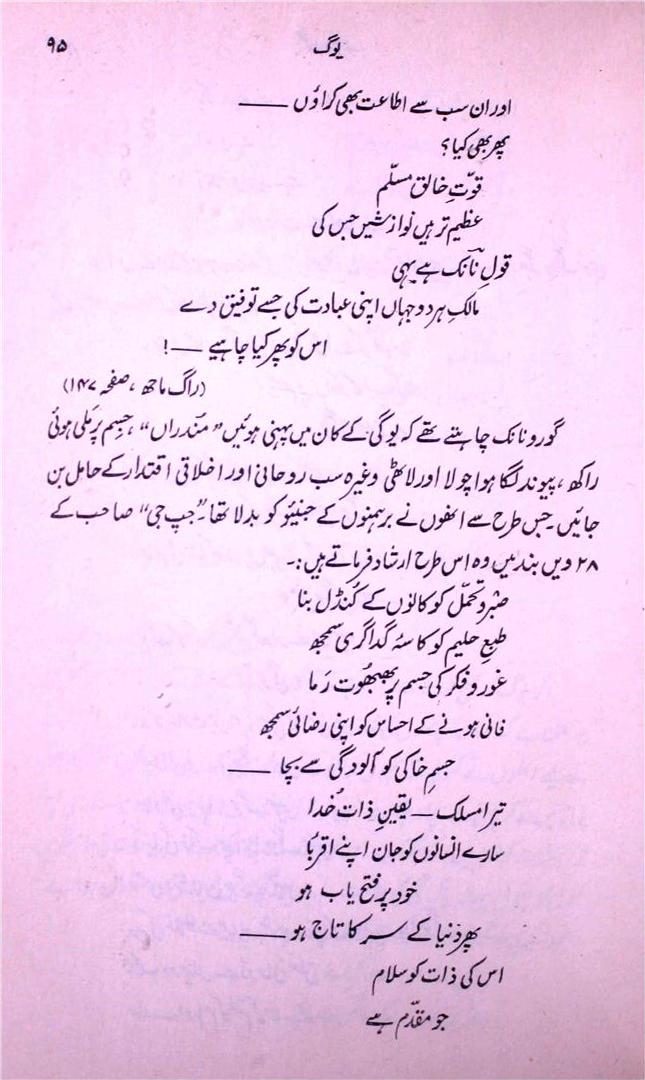 یوگ ۹۵
اور ان سب سے اطاعت بھی کراؤں ——
پھر بھی کیا؟
قوّتِ خالق مسلّم
عظیم تر ہیں نوازشیں جس کی
قولِ نانک ہے یہی
مالکِ ہر دو جہاں اپنی عبادت کی جسے توفیق دے
اس کو پھر کیا چاہیے ——!
(راگ ماجھ، صفحہ ۱۴۷)
گورونانک چاہتے تھے کہ یوگی کے کان میں پہنی ہوئیں ”مندراں“، جسم پر مَلی ہوئی
راکھ، پیوند لگا ہوا چولا اور لاٹھی وغیرہ سب روحانی اور اخلاقی اقتدار کے حامل بن
جائیں۔ جس طرح سے انھوں نے برہمنوں کے جنیئو کو بدلا تھا۔ ”جپ جی“ صاحب کے
۲۸ ویں بند میں وہ اس طرح ارشاد فرماتے ہیں:۔
صبر و تحمّل کو کانوں کے کُنڈل بنا
طبعِ حلیم کو کاسۂ گداگری سمجھ
غور و فکر کی جسم پر بھبھُوت رَما
فانی ہونے کے احساس کو اپنی رضائی سمجھ
جسمِ خاکی کو آلودگی سے بچا ——
تیرا مسلک — یقینِ ذات خُدا
سارے انسانوں کو جان اپنے اقربا
خود پر فتح یاب ہو
پھر دُنیا کے سر کا تاج ہو ——
اس کی ذات کو سلام
جو مقدّم ہے